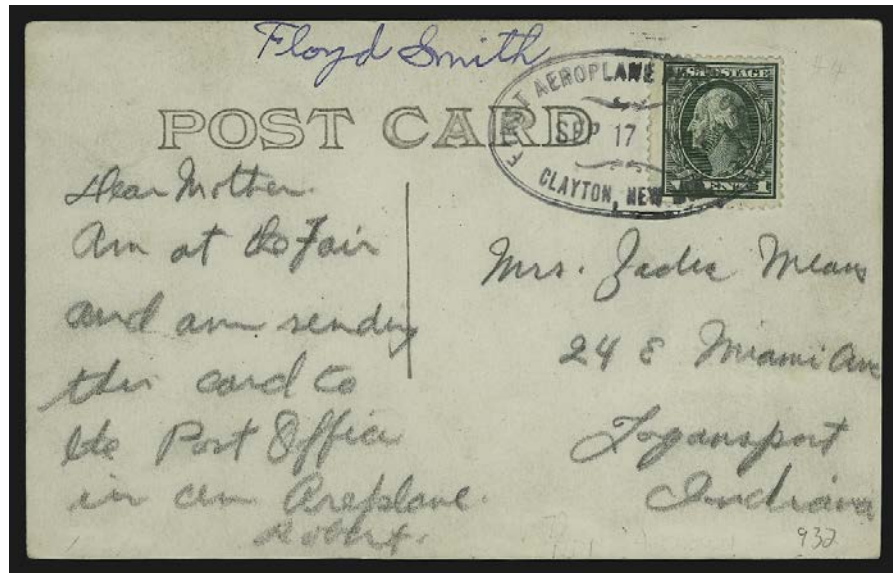 Floyd Smith
AEROPLANE
SEP 17
CLAYTON, NEW
U.S. POSTAGE
POST CARD
Dear Mother.
Am at the Fair
and am sending
this card to
the Post Office
in an Areplane.
Robert.
Mrs. Means
24 E Miami Ave
Logansport
Indiana
932